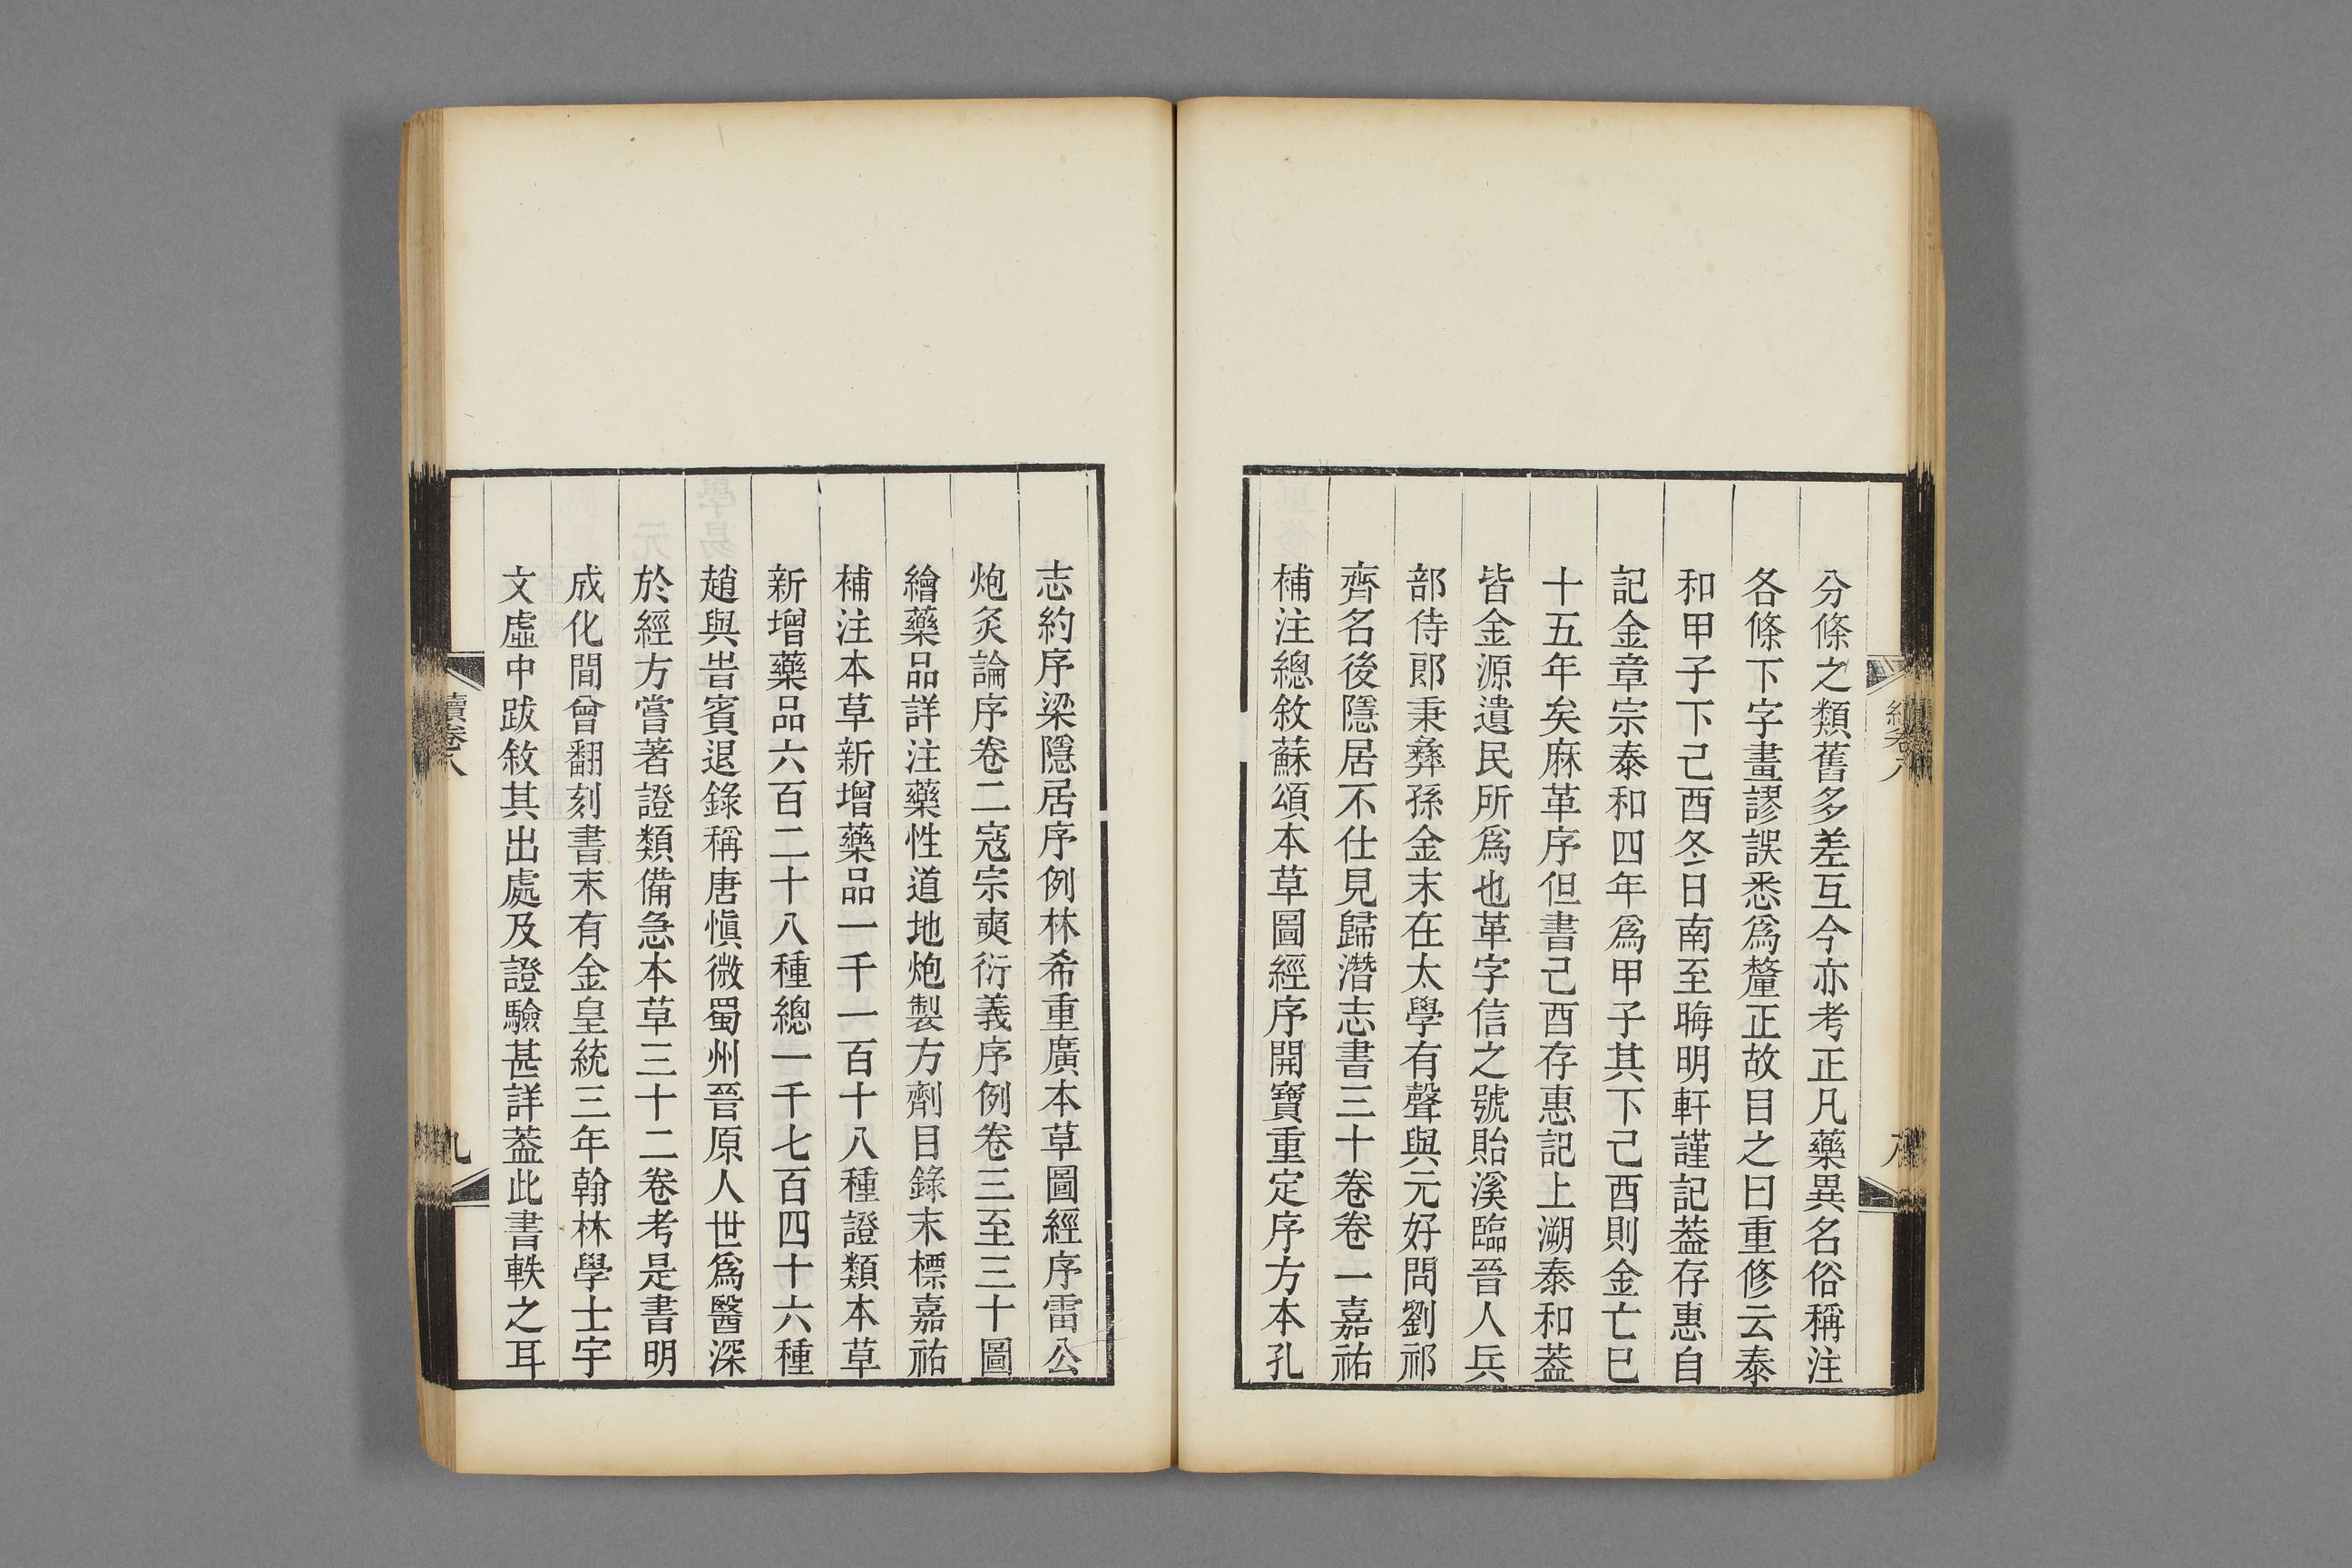 分條之類舊多差互今亦考正凡藥異名俗稱注
各條下字畫謬誤悉爲釐正故目之曰重修云泰
和甲子下己酉冬日南至晦明軒謹記葢存惠自
記金章宗泰和四年爲甲子其下己酉則金亡已
十五年矣麻革序但書己酉存惠記上溯泰和葢
皆金源遺民所爲也革字信之號貽溪臨晉人兵
部侍郎秉彝孫金末在太學有聲與元好問劉祁
齊名後隱居不仕見歸潛志書三十卷卷一嘉祐
補注總敘蘇頌本草圖經序開寶重定序方本孔
志約序梁隱居序例林希重廣本草圖經序雷公
炮炙論序卷二寇宗奭衍義序例卷三至三十圖
繪藥品詳注藥性道地炮製方劑目錄末標嘉祐
補注本草新增藥品一千一百十八種證類本草
新增藥品六百二十八種總一千七百四十六種
趙與旹賓退錄稱唐愼微蜀州晉原人世爲醫深
於經方嘗著證類備急本草三十二卷考是書明
成化間曾翻刻書末有金皇統三年翰林學士宇
文虛中跋敘其出處及證驗甚詳葢此書軼之耳
續卷八
九